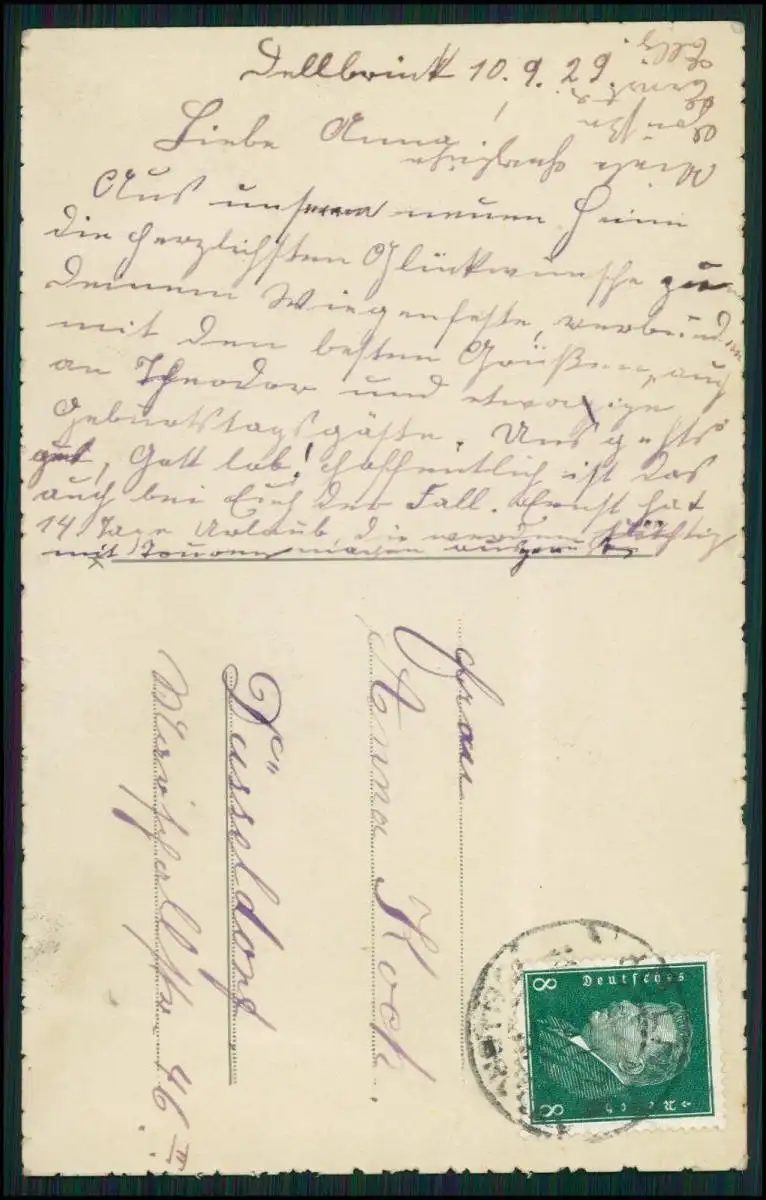 Dellbrück 10.9.29
Liebe Anna!
Aus unserem neuen Heim
die herzlichsten Glückwünsche zu
Deinem Wiegenfeste, verbunden
mit den besten Grüßen, auch
an Theodor und etwaige
Geburtstagsgäste. Uns gehts
gut, Gott lob! Hoffentlich ist das
auch bei Euch der Fall. Ernst hat
14 Tage Urlaub, die werden tüchtig
mit Touren machen ausgenutzt.
Frau
Anna Koch
Düsseldorf
46 II
Deutsches
Reich
8
8